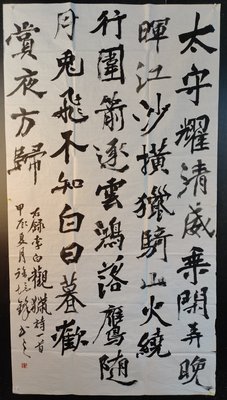 太守耀清威乘閑弄晚
暉江沙橫獵騎山火繞
行圍箭逐雲鴻落鷹隨
月兔飛不知白日暮歡
賞夜方歸
右錄李白觀獵詩一首
夏月